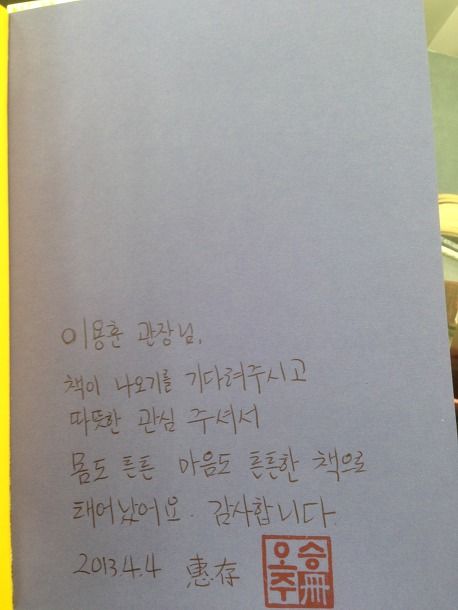 이용훈 관장님,
책이 나오기를 기다려주시고
따뜻한 관심 주셔서
몸도 튼튼 마음도 튼튼한 책으로
태어났어요. 감사합니다.
2013.4.4 惠存
오승
주冊